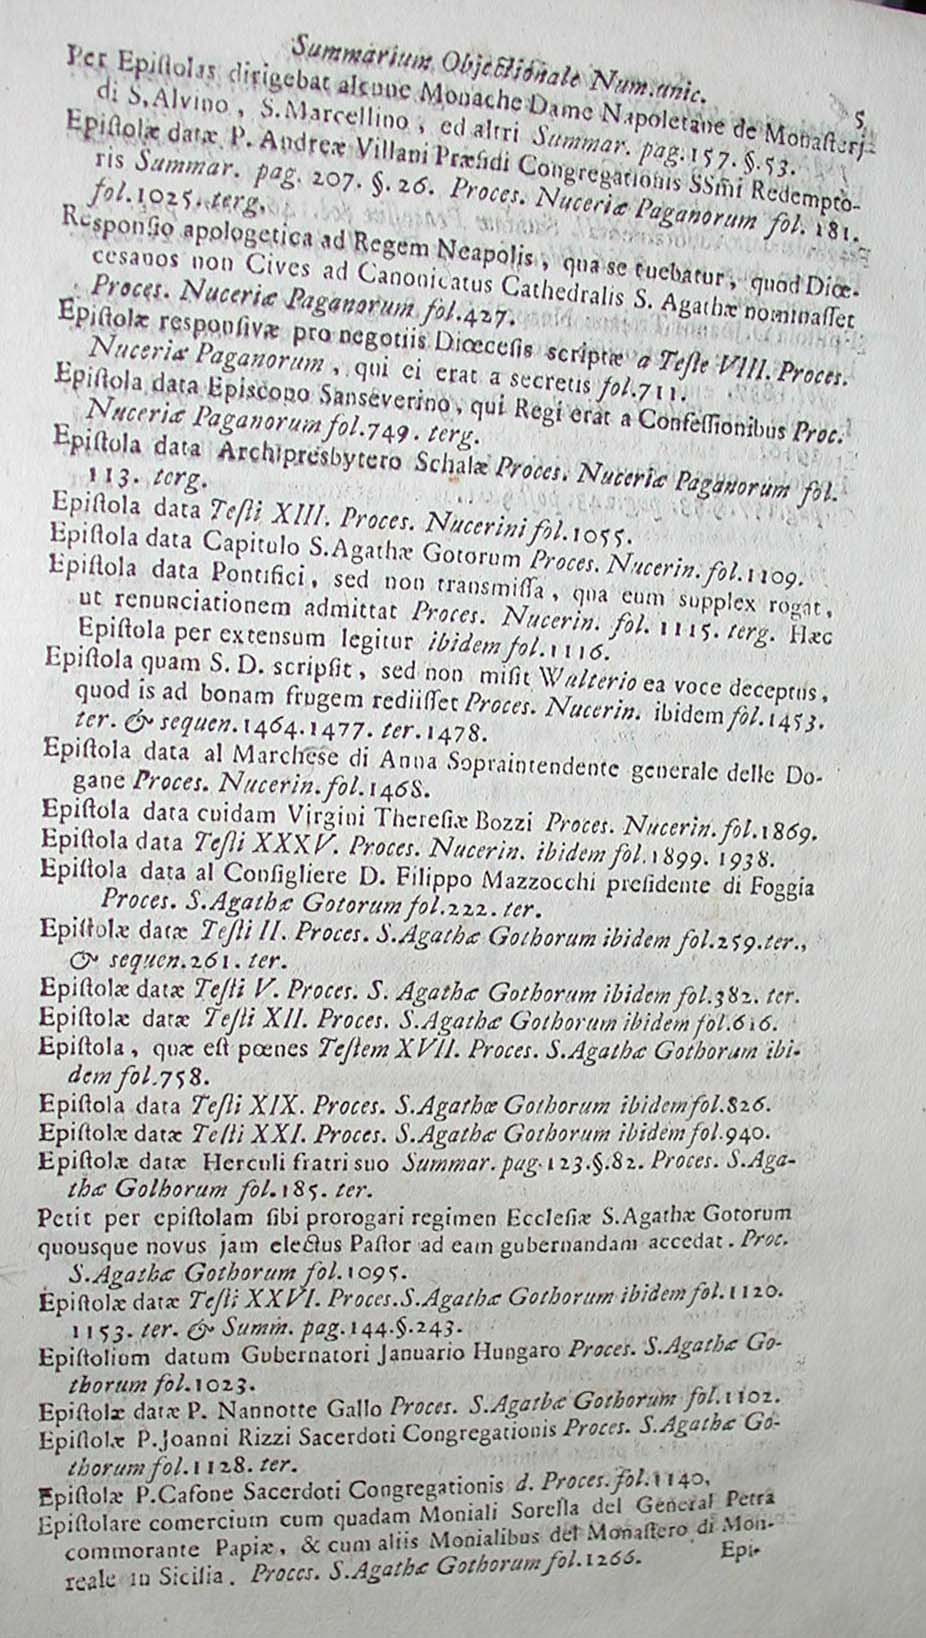 Summarium Objectionale Num.unic.
5
Per Epiſtolas dirigebat alcune Monache Dame Napoletane de Monaſterj
di S.Alvino, S.Marcellino, ed altri Summar. pag.157.§.53.
Epiſtolæ datæ P. Andreæ Villani Præſidi Congregationis SSm̃i Redempto-
ris Summar. pag. 207. §. 26. Proces. Nuceriæ Paganorum fol. 181.
fol.1025. terg.
Reſponſio apologetica ad Regem Neapolis, qua se tuebatur, quod Diœ-
cesanos non Cives ad Canonicatus Cathedralis S. Agathæ nominaſſet
Proces. Nuceriæ Paganorum fol.427.
Epiſtolæ reſponſivæ pro negotiis Diœceſis scriptæ a Teſte VIII. Proces.
Nuceriæ Paganorum, qui ei erat a secretis fol.711.
Epiſtola data Episcopo Sanseverino, qui Regi erat a Confeſſionibus Proc.
Nuceriæ Paganorum fol.749. terg.
Epiſtola data Archipresbytero Schalæ Proces. Nuceriæ Paganorum fol.
113. terg.
Epiſtola data Teſti XIII. Proces. Nucerini fol.1055.
Epiſtola data Capitulo S.Agathæ Gotorum Proces. Nucerin. fol.1109.
Epiſtola data Pontifici, sed non transmiſſa, qua eum supplex rogat,
ut renunciationem admittat Proces. Nucerin. fol. 1115. terg. Hæc
Epiſtola per extensum legitur ibidem fol.1116.
Epiſtola quam S. D. scripſit, sed non miſit Walterio ea voce deceptus,
quod is ad bonam frugem rediiſſet Proces. Nucerin. ibidem fol.1453.
ter. & sequen.1464.1477. ter.1478.
Epiſtola data al Marchese di Anna Sopraintendente generale delle Do-
gane Proces. Nucerin. fol.1468.
Epiſtola data cuidam Virgini Thereſiæ Bozzi Proces. Nucerin. fol.1869.
Epiſtola data Teſti XXXV. Proces. Nucerin. ibidem fol.1899. 1938.
Epiſtola data al Conſigliere D. Filippo Mazzocchi preſidente di Foggia
Proces. S.Agathæ Gotorum fol.222. ter.
Epiſtolæ datæ Teſti II. Proces. S.Agathæ Gothorum ibidem fol.259.ter.,
& sequen.261. ter.
Epiſtolæ datæ Teſti V. Proces. S. Agathæ Gothorum ibidem fol.382. ter.
Epiſtolæ datæ Teſti XII. Proces. S.Agathæ Gothorum ibidem fol.616.
Epiſtola, quæ eſt pœnes Teſtem XVII. Proces. S.Agathæ Gothorum ibi-
dem fol.758.
Epiſtola data Teſti XIX. Proces. S.Agathœ Gothorum ibidem fol.826.
Epiſtolæ datæ Teſti XXI. Proces. S.Agathæ Gothorum ibidem fol.940.
Epiſtolæ datæ Herculi fratri suo Summar. pag.123.§.82. Proces. S.Aga-
thæ Golhorum fol.185. ter.
Petit per epiſtolam ſibi prorogari regimen Eccleſiæ S.Agathæ Gotorum
quousque novus jam electus Paſtor ad eam gubernandam accedat. Proc.
S.Agathæ Gothorum fol.1095.
Epiſtolæ datæ Teſti XXVI. Proces.S.Agathæ Gothorum ibidem fol.1120.
1153. ter. & Summ. pag.144.§.243.
Epiſtolium datum Gubernatori Januario Hungaro Proces. S.Agathæ Go-
thorum fol.1023.
Epiſtolæ datæ P. Nannotte Gallo Proces. S.Agathæ Gothorum fol.1102.
Epiſtolæ P.Joanni Rizzi Sacerdoti Congregationis Proces. S.Agathæ Go-
thorum fol.1128. ter.
Epiſtolæ P.Cafone Sacerdoti Congregationis d. Proces. fol.1140.
Epiſtolare comercium cum quadam Moniali Sorella del General Petra
commorante Papiæ, & cum aliis Monialibus del Monaſtero di Mon-
reale in Sicilia. Proces. S.Agathæ Gothorum fol.1266.
Epi-